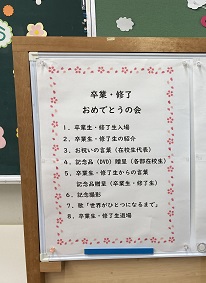 卒業・修了
おめでとうの会
1．卒業生・修了生入場
2．卒業生・修了生の紹介
3．お祝いの言葉（在校生代表）
4．記念品（DVD）贈呈（各部在校生）
5．卒業生・修了生からの言葉
記念品贈呈（卒業生・修了生）
6．記念撮影
7．歌「世界がひとつになるまで」
8．卒業生・修了生退場